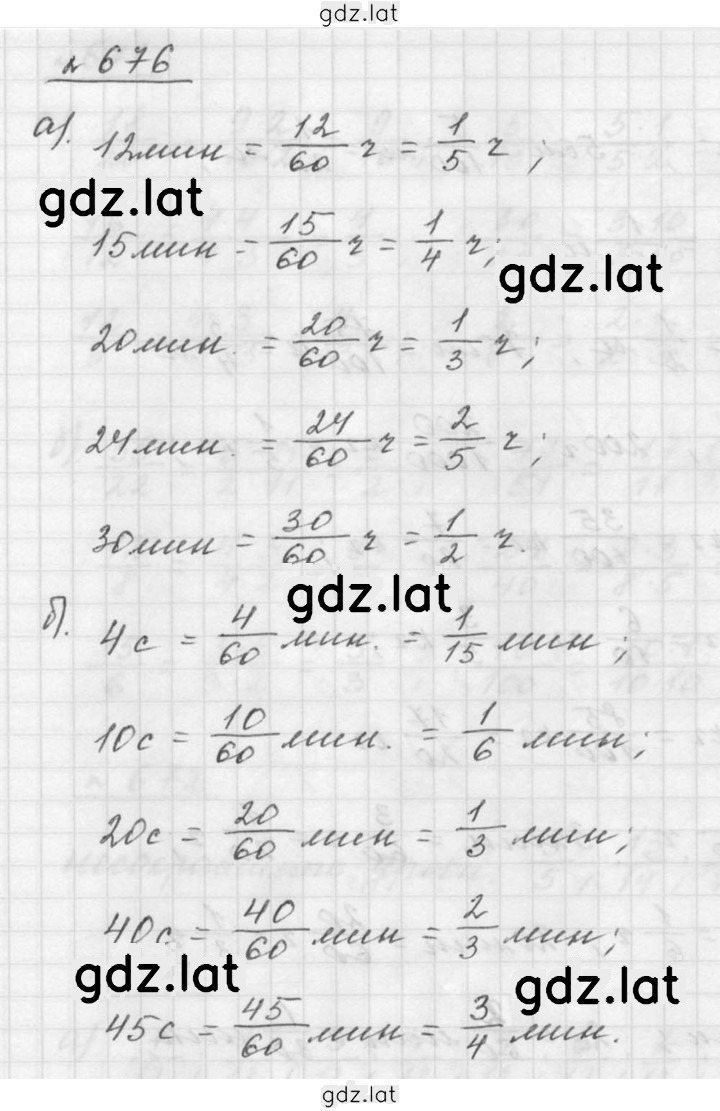 gdz.lat
№ 676
а). 12мин = 12/60 ч = 1/5 ч ;
gdz.lat
15мин = 15/60 ч = 1/4 ч;
gdz.lat
20мин. = 20/60 ч = 1/3 ч;
24мин. = 24/60 ч = 2/5 ч;
30мин = 30/60 ч = 1/2 ч.
gdz.lat
б). 4с = 4/60 мин. = 1/15 мин ;
10с = 10/60 мин. = 1/6 мин;
20с = 20/60 мин = 1/3 мин;
40с = 40/60 мин = 2/3 мин;
gdz.lat
gdz.lat
45с = 45/60 мин = 3/4 мин.
gdz.lat